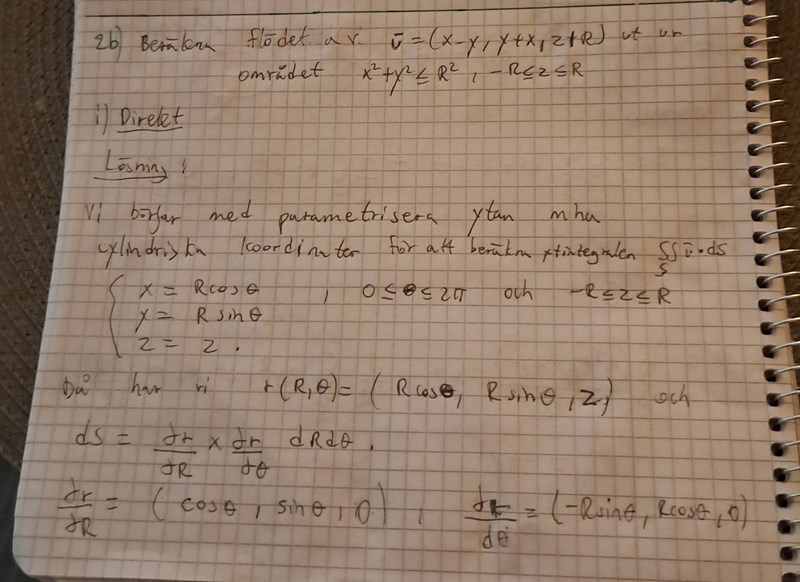 2b) Beräkna flödet av ū = (x-y, y+x, z+R) ut ur
området x²+y² ≤ R², -R ≤ z ≤ R
i) Direkt
Lösning:
Vi börjar med parametrisera ytan mha
cylindriska koordinater för att beräkna ytintegralen ∬_S ū·dS
{ x = R cosθ , 0 ≤ θ ≤ 2π och -R ≤ z ≤ R
y = R sinθ
z = z .
Då har vi r(R,θ) = (R cosθ, R sinθ, z) och
dS = ∂r/∂R × ∂r/∂θ dR dθ.
∂r/∂R = (cosθ, sinθ, 0) , ∂r/dθ = (-R sinθ, R cosθ, 0)